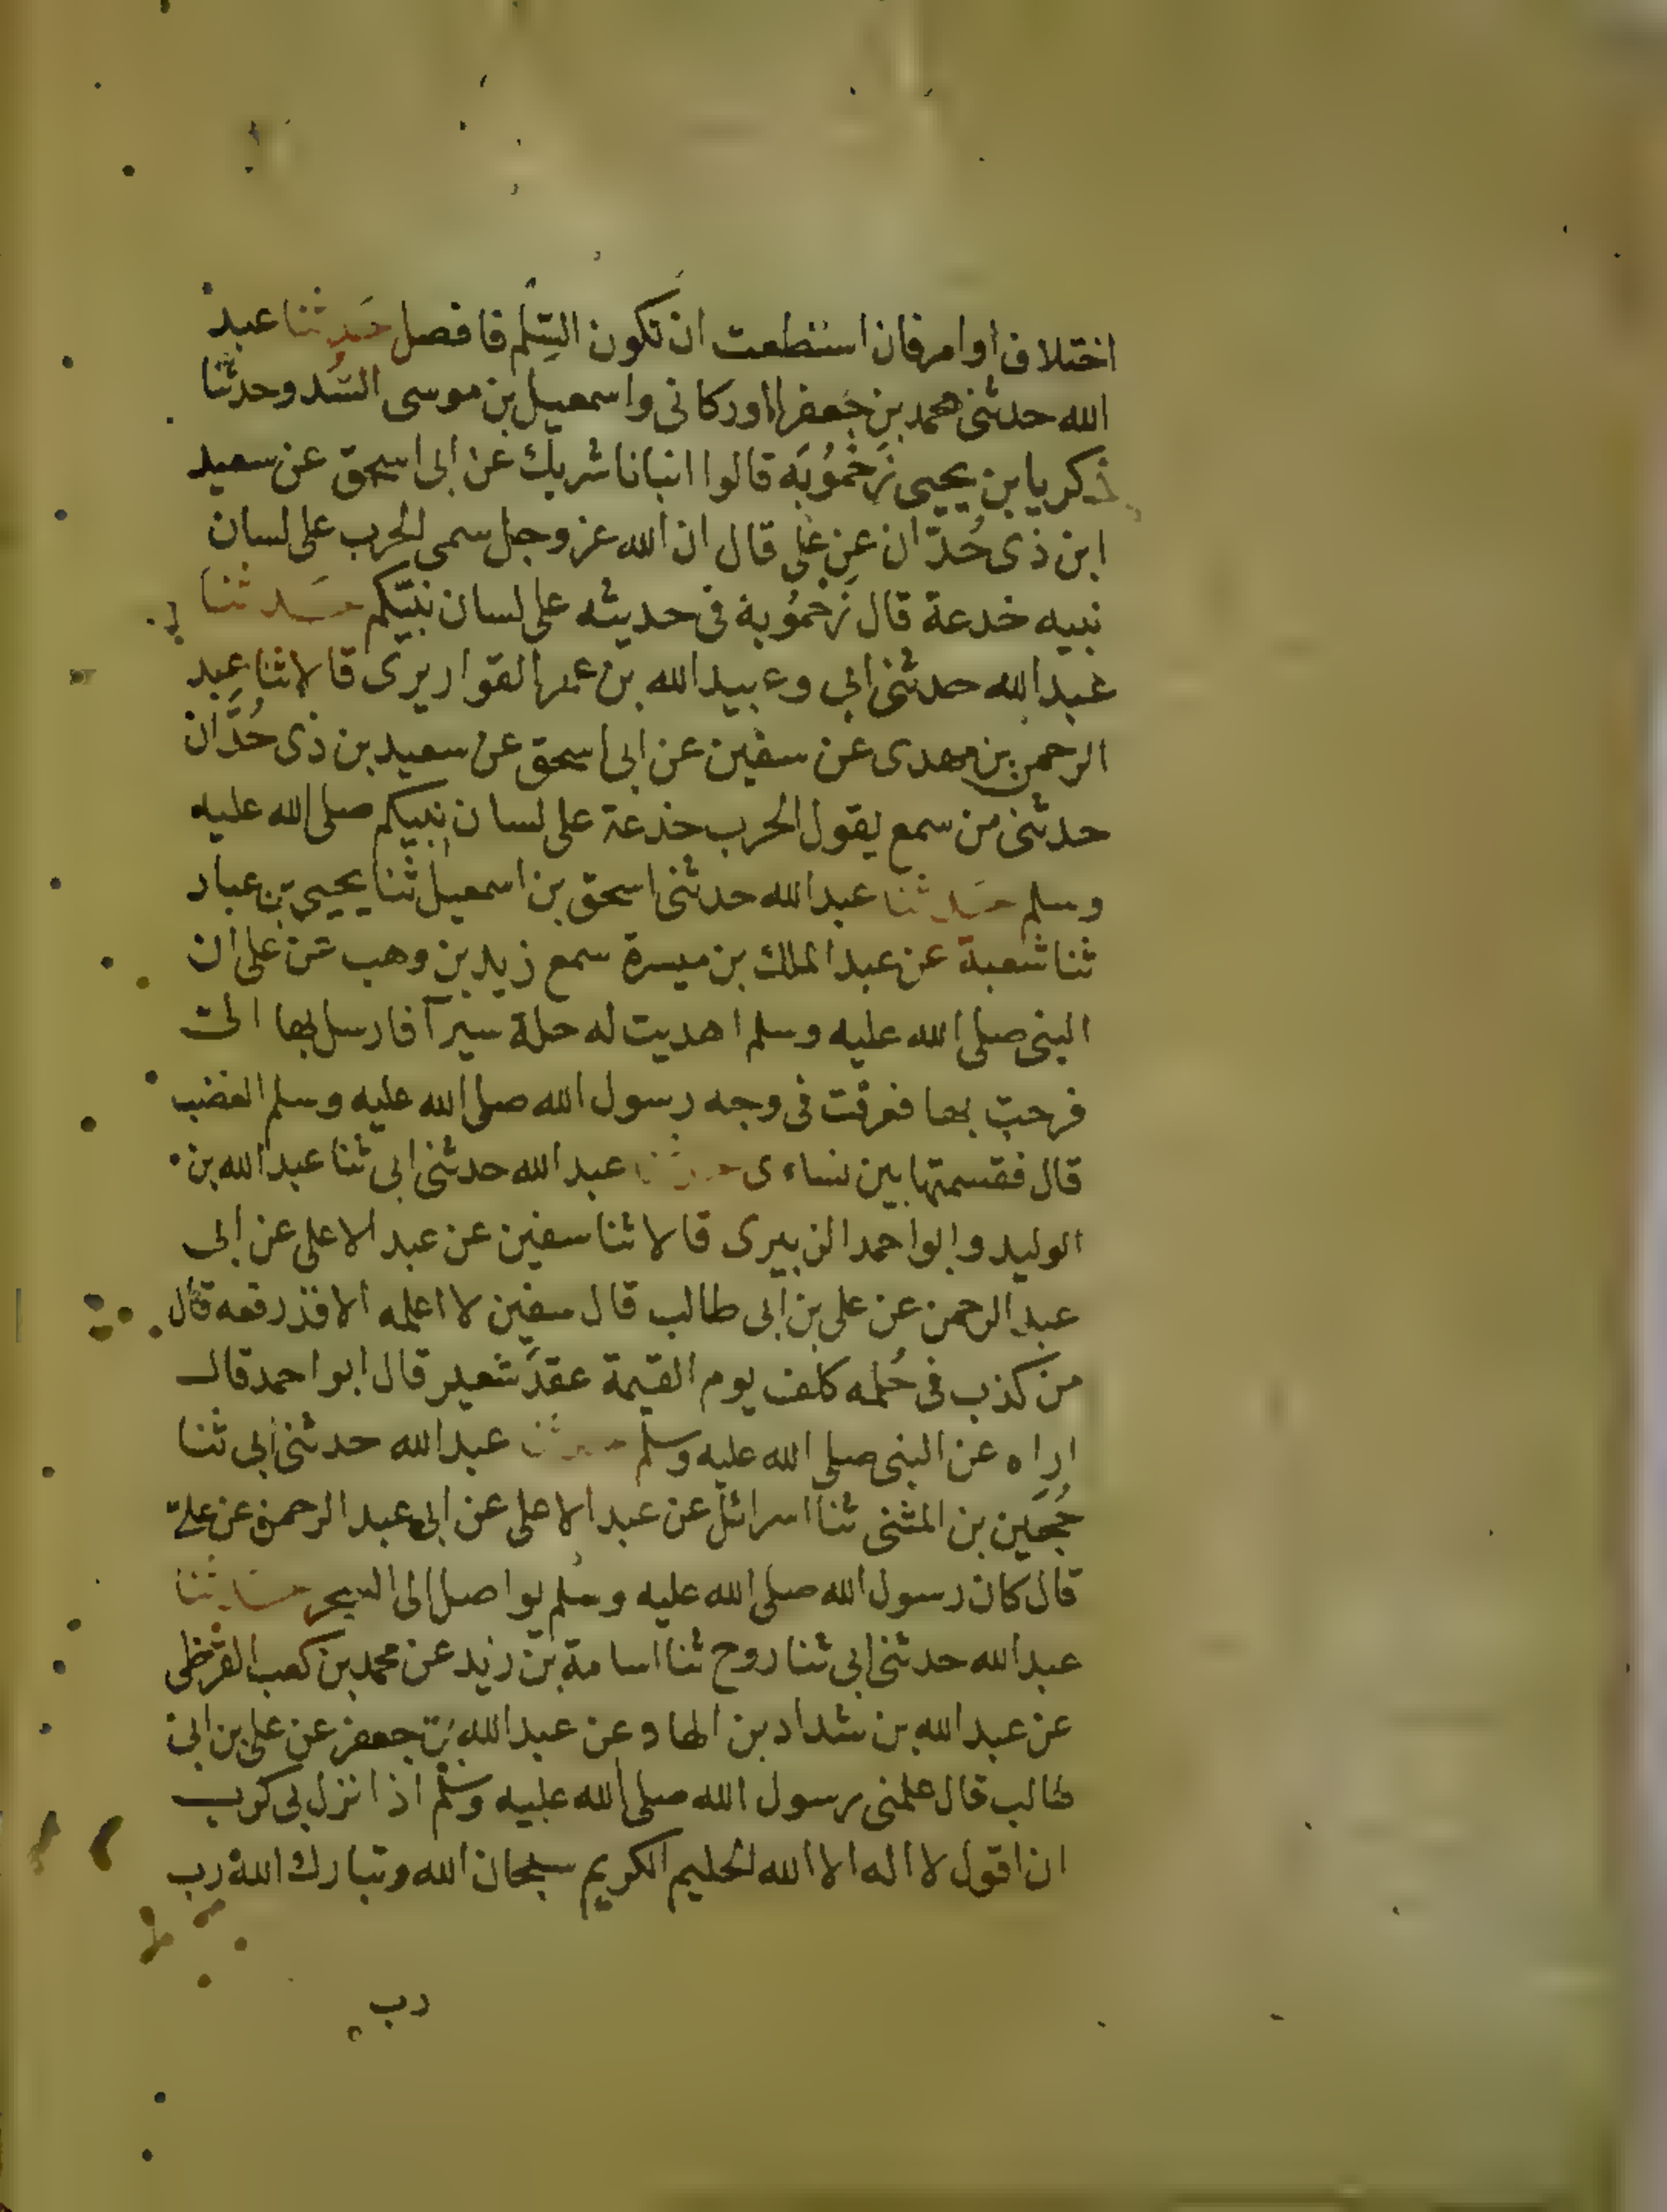 اختلاف او امر فان استطعت ان تكون السِّلم فافصل حَدثنا عبد
الله حدثنى محمد بن جَعفر الوركانى واسمعيل بن موسى السُّد وحدثنا
زكريا بن يحيى زَحْمُوُيَه قالوا انبانا شريك عن ابى اسحق عن سعيد
ابن ذى حُدّان عن على قال ان الله عز وجل سمى الحرب على لسان
نبيه خدعة قال زَحْمُوُية فى حديثه على لسان نبيّكم حَدثنا
عبد الله حدثنى ابى وعبيد الله بن عمر القواريرى قالا ثنا عبد
الرحمن بن مهدى عن سفين عن ابى اسحق عن سعيد بن ذى حُدَّان
حدثنى من سمع يقول الحرب خدعة على لسان نبيكم صلى الله عليه
وسلم حَدثنا عبد الله حدثنى اسحق بن اسمعيل ثنا يحيى بن عباد
ثنا شعبة عن عبد الملك بن ميسرة سمع زيد بن وهب عن على ان
النبى صلى الله عليه وسلم اهديت له حلة سيرآ فارسل بها الى
فرحت بها فعرفت فى وجه رسول الله صلى الله عليه وسلم الغضب
قال فقسمتها بين نساءى حدثنا عبد الله حدثنى ابى ثنا عبد الله بن
الوليد وابو احمد الزبيرى قالا ثنا سفين عن عبد الاعلى عن ابى
عبد الرحمن عن على بن ابى طالب قال سفين لا اعلمه الا قد رفعه قال
من كذب فى حُلمه كلف يوم القيمة عقدَ شعير قال ابو احمد قال
اراه عن النبى صلى الله عليه وسلم حدثنا عبد الله حدثنى ابى ثنا
حُجَين بن المثنى ثنا اسرائل عن عبد الاعلى عن ابى عبد الرحمن عن على
قال كان رسول الله صلى الله عليه وسلم يواصل الى السحر حَدثنا
عبد الله حدثنى ابى ثنا روح ثنا اسامة بن زيد عن محمد بن كعب القرظى
عن عبد الله بن شداد بن الهاد عن عبد الله بن جعفر عن على بن ابى
طالب قال علمنى رسول الله صلى الله عليه وسلم اذا نزل بى كرب
ان اقول لا اله الا الله الحليم الكريم سبحان الله وتبارك الله رب
رب